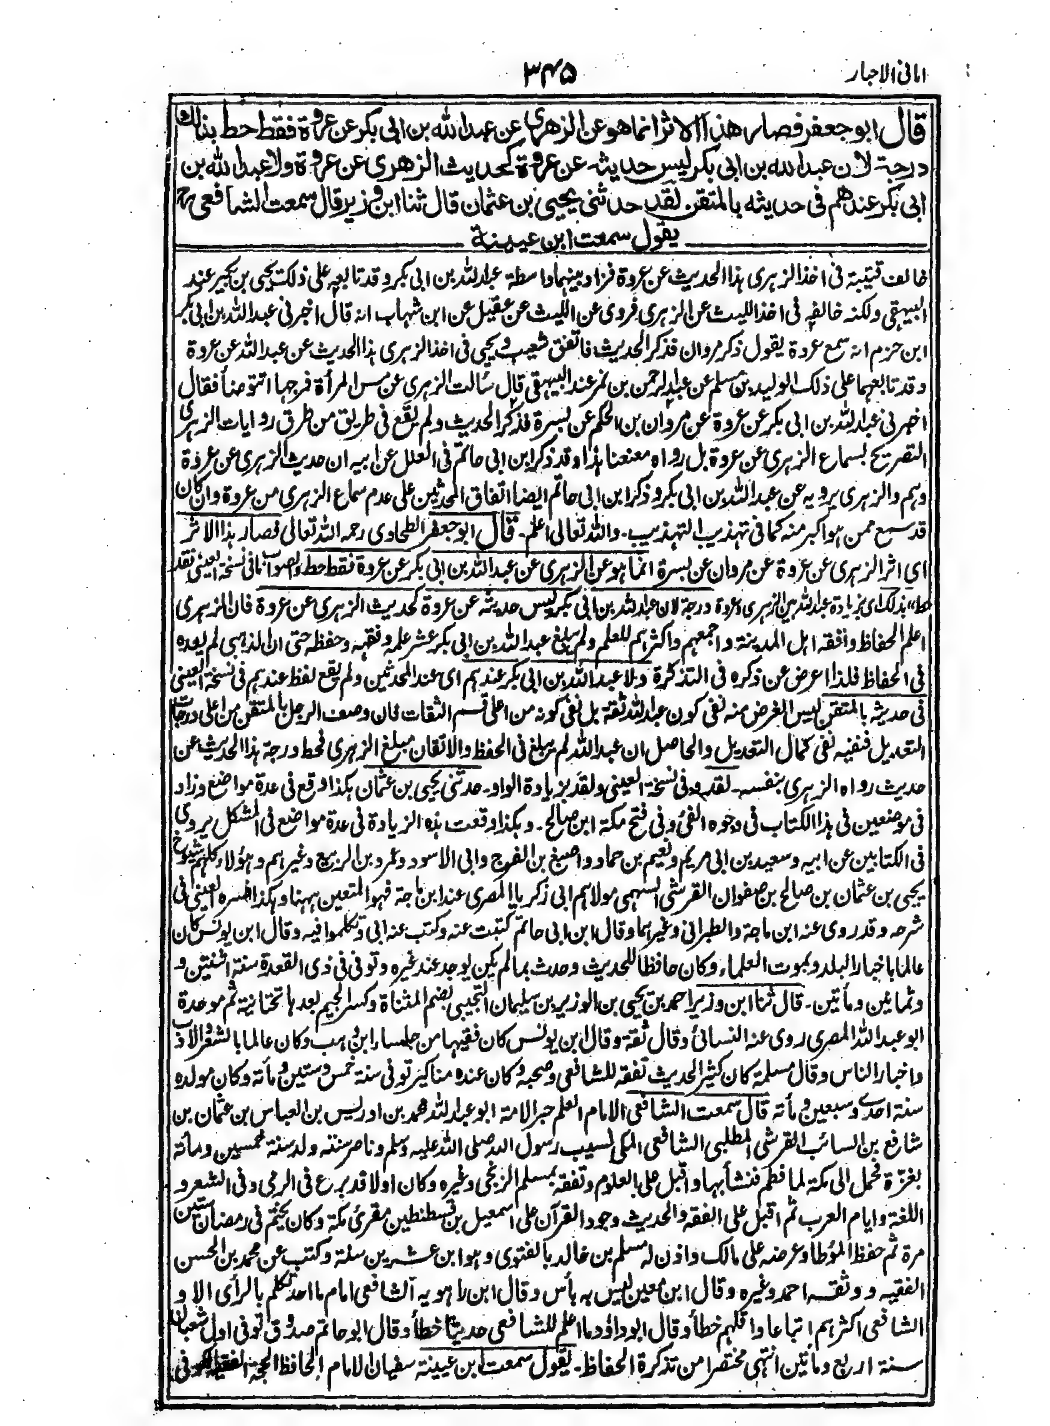 امانی الاحبار
۳۴۵
قال ابو جعفر فصار هذا الاثر انما هو عن الزهری عن عبد الله بن ابی بکر عن عروة فقط حط بذلك
درجة لان عبد الله بن ابی بکر لیس حدیثه عن عروة کحدیث الزهری عن عروة ولا عبد الله بن
ابی بکر عندهم فی حدیثه بالمتقن لقد حدثنی یحیی بن عثمان قال ثنا ابن وزیر قال سمعت الشافعی رح
یقول سمعت ابن عیینة
خالف قتیبة فی اخذ الزهری هذا الحدیث عن عروة فزاد بینهما واسطة عبد الله بن ابی بکر وقد تابعه علی ذلک یحیی بن بکیر عند
البیهقی ولکنه خالفه فی اخذ اللیث عن الزهری فروی عن اللیث عن عقیل عن ابن شهاب انه قال اخبرنی عبد الله بن ابی بکر
ابن حزم انه سمع عروة یقول ذکر مروان فذکر الحدیث فاتفق شعیب ویحیی فی اخذ الزهری هذا الحدیث عن عبد الله عن عروة
وقد تابعهما علی ذلک الولید بن مسلم عن عبد الرحمن بن نمر عند البیهقی قال سألت الزهری عن مس المرأة فرجها اتتوضأ فقال
اخبرنی عبد الله بن ابی بکر عن عروة عن مروان بن الحکم عن بسرة فذکر الحدیث ولم یقع فی طریق من طرق روایات الزهری
التصریح بسماع الزهری عن عروة بل رواه معنعنا هذا وقد ذکر ابن ابی حاتم فی العلل عن ابیه ان حدیث الزهری عن عروة
وهم والزهری یرویه عن عبد الله بن ابی بکر وذکر ابن ابی حاتم ایضا اتفاق المحدثین علی عدم سماع الزهری من عروة وان کان
قد سمع ممن هو اکبر منه کما فی تهذیب التهذیب۔ والله تعالی اعلم۔ قال ابو جعفر الطحاوی رحمه الله تعالی فصار هذا الاثر
ای اثر الزهری عن عروة عن مروان عن بسرة انما هو عن الزهری عن عبد الله بن ابی بکر عن عروة فقط حط والصواب ما فی نسخة العینی فقد
حط بذلک ای بزیادة عبد الله بین الزهری وعروة درجة لان عبد الله بن ابی بکر لیس حدیثه عن عروة کحدیث الزهری عن عروة فان الزهری
اعلم الحفاظ وافقه اهل المدینة واجمعهم واکثرهم للعلم ولم یبلغ عبد الله بن ابی بکر عشر علمه وفقهه وحفظه حتی ان الذهبی لم یعده
فی الحفاظ فلذا اعرض عن ذکره فی التذکرة ولا عبد الله بن ابی بکر عندهم ای عند المحدثین ولم یقع لفظ عندهم فی نسخة العینی
فی حدیثه بالمتقن لیس الغرض منه نفی کون عبد الله ثقة بل نفی کونه من اعلی قسم الثقات فان وصف الرجل بالمتقن من اعلی درجات
التعدیل فنفیه نفی کمال التعدیل والحاصل ان عبد الله لم یبلغ فی الحفظ والاتقان مبلغ الزهری فحط درجة هذا الحدیث عن
حدیث رواه الزهری بنفسه۔ لقد وفی نسخة العینی ولقد بزیادة الواو۔ حدثنی یحیی بن عثمان هکذا وقع فی عدة مواضع وزاد
فی موضعین فی هذا الکتاب فی وجوه الفئ وفی فتح مکة ابن صالح۔ وهکذا وقعت هذه الزیادة فی عدة مواضع فی المشکل یروی
فی الکتابین عن ابیه وسعید بن ابی مریم ونعیم بن حماد واصبغ بن الفرج وابی الاسود وعمرو بن الربیع وغیرهم وهؤلاء کلهم شیوخ
یحیی بن عثمان بن صالح بن صفوان القرشی السهمی مولاهم ابی زکریا المصری عند ابن ماجة فهو المتعین ههنا وهکذا فسره العینی فی
شرحه وقد روی عنه ابن ماجة والطبرانی وغیرهما وقال ابن ابی حاتم کتبت عنه وکتب عنه ابی وتکلموا فیه وقال ابن یونس کان
عالما باخبار البلد وبموت العلماء وکان حافظا للحدیث وحدث بما لم یکن یوجد عند غیره وتوفی فی ذی القعدة سنة اثنتین و
وثمانین ومأتین۔ قال ثنا ابن وزیر احمد بن یحیی بن الوزیر بن سلیمان التجیبی بضم المثناة وکسر الجیم بعدها تحتانیة ثم موحدة
ابو عبد الله المصری روی عنه النسائی وقال ثقة وقال ابن یونس کان فقیها من جلساء ابن وهب وکان عالما بالشعر والادب
واخبار الناس وقال مسلمة کان کثیر الحدیث تفقه للشافعی وصحبه وکان عنده مناکیر توفی سنة خمس وستین ومأته وکان مولده
سنة احدی وسبعین ومأته قال سمعت الشافعی الامام العلم حبر الامة ابو عبد الله محمد بن ادریس بن العباس بن عثمان بن
شافع بن السائب القرشی المطلبی الشافعی المکی نسیب رسول الله صلی الله علیه وسلم وناصر سنته ولد سنة خمسین ومأته
بغزة فحمل الی مکة لما فطم فنشأ بها واقبل علی العلوم وتفقه بمسلم الزنجی وغیره وکان اولا قد برع فی الرمی وفی الشعر و
اللغة وایام العرب ثم اقبل علی الفقه والحدیث وجود القرآن علی اسمعیل بن قسطنطین مقرئ مکة وکان یختم فی رمضان ستین
مرة ثم حفظ المؤطا وعرضه علی مالک واذن له مسلم بن خالد بالفتوی وهو ابن عشرین سنة وکتب عن محمد بن الحسن
الفقیه ووثقه احمد وغیره وقال ابن معین لیس به بأس وقال ابن راهویه الشافعی امام ما احد تکلم بالرأی الا و
الشافعی اکثرهم اتباعا واقلهم خطأ وقال ابو داؤد ما اعلم للشافعی حدیثا خطأ وقال ابو حاتم صدوق توفی اول شعبان
سنة اربع ومأتین انتهی مختصرا من تذکرة الحفاظ۔ یقول سمعت ابن عیینة سفیان الامام الحافظ الحجة الفقیه الکوفی